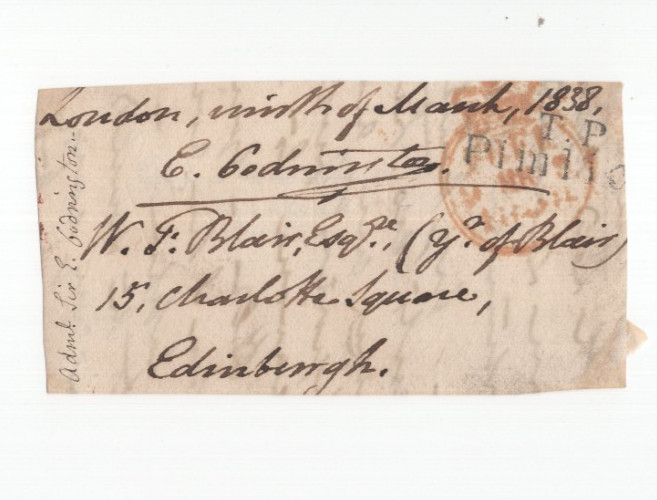 London, ninth of March, 1838,
T.P
Pimli
E. Codrington.
W. F. Blair, Esqre., (yr. of Blair)
15, Charlotte Square,
Edinburgh.
Adml. Sir E. Codrington.